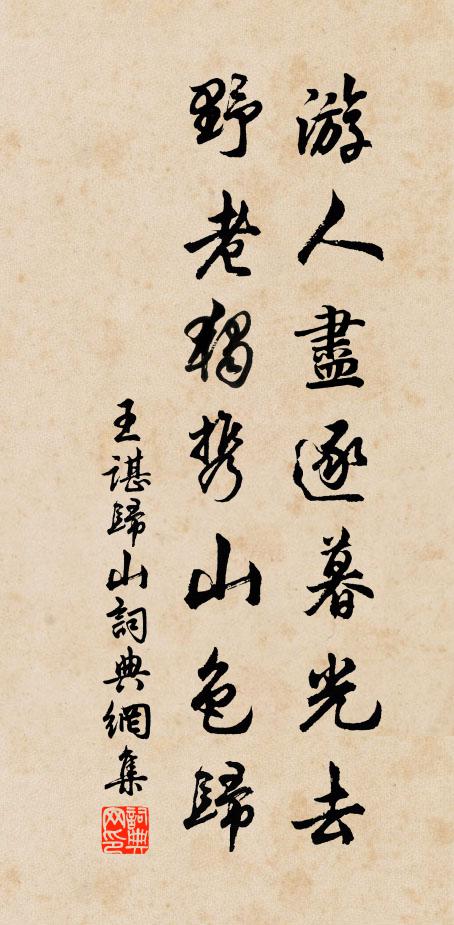 游人盡逐暮光去
野老獨携山色歸
王諶歸山詞典網集
詞典网印